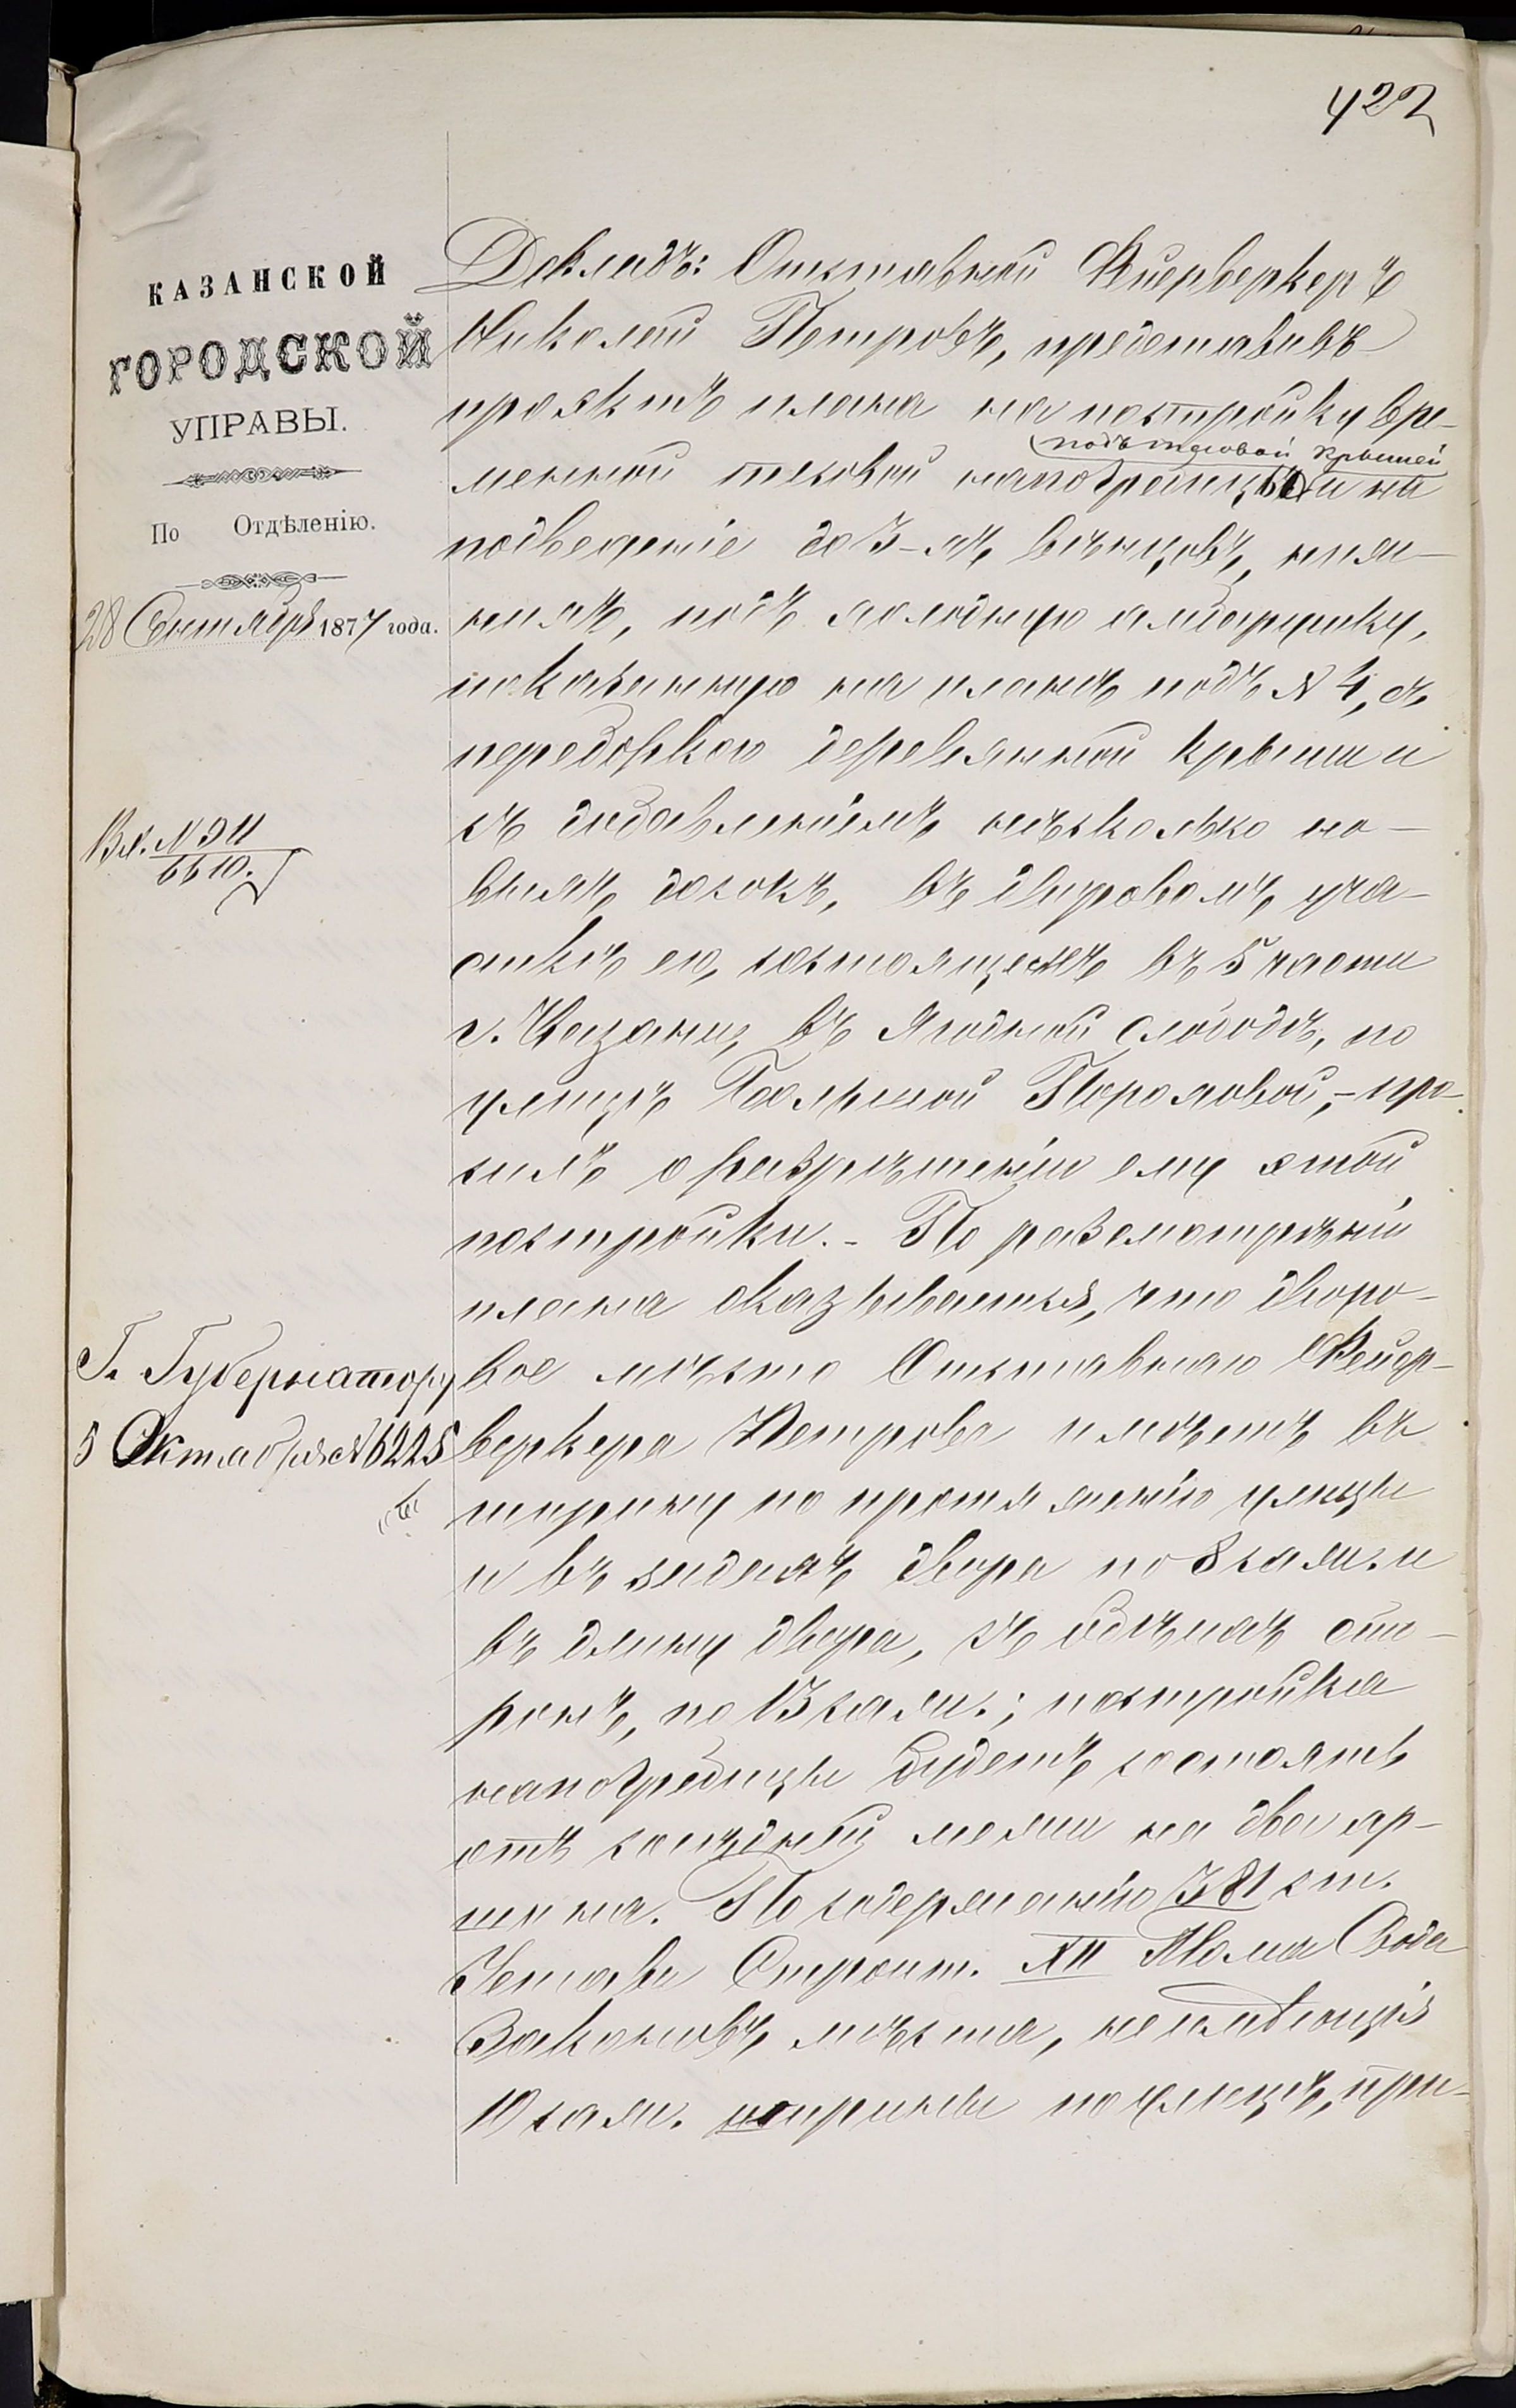 422
КАЗАНСКОЙ
ГОРОДСКОЙ
УПРАВЫ.
По Отдѣленію.
28 Сентября 1877 года.
Вх. №
6610.
Г. Губернатору
5 Октября № 6225
Докладъ: Отставной Фиерверкеръ
Николай Петровъ, представивъ
проэктъ плана на постройку вре-
подъ тесовой крышей
менной тесовой напогребицы и на
подведеніе до 3-хъ вѣнцовъ, ниж-
нихъ, подъ холодную амбарушку,
показанную на планѣ подъ № 4, съ
переборкою деревянной крыши и
съ добавленіемъ нѣсколько но-
выхъ досокъ, въ дворовомъ уча-
сткѣ его, состоящемъ въ 5 части
г. Казани, въ Ягодной слободѣ, по
улицѣ Большой Пороховой,- про-
силъ о разрѣшеніи ему этой
постройки.- По разсмотрѣніи
плана оказывается, что дворо-
вое мѣсто Отставнаго Фейер-
веркера Петрова имѣетъ въ
ширину по протяженію улицы
и въ задахъ двора по 8 саж. и
въ длину двора, съ обѣихъ сто-
ронъ, по 13 саж.; постройка
напогребицы будетъ состоять
отъ сосѣдней межи на два ар-
шина. По содержанію 381 ст.
Устава Строит. XII Тома Свода
Законовъ мѣста, неимѣющія
10 саж. ширины по улицѣ, при-